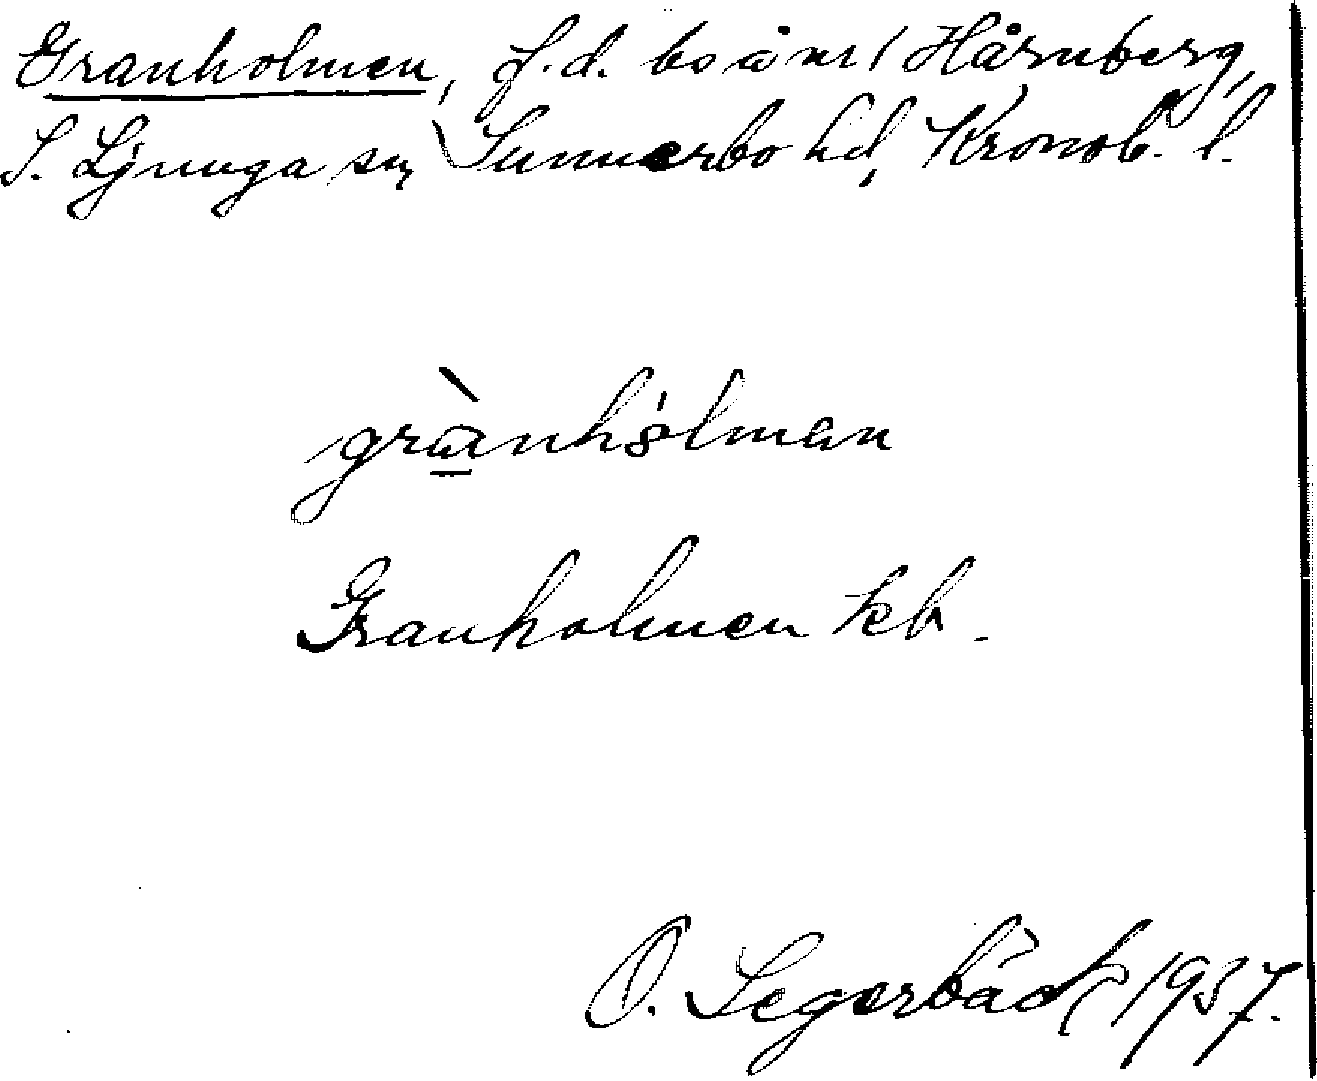 Granholmen, f.d. bo å nr 1 Hårnberg,
S. Ljunga sn, Sunnerbo hd, Kronob. l.
grànhólman
Granholmen kb.
O. Segerbäck 1937.